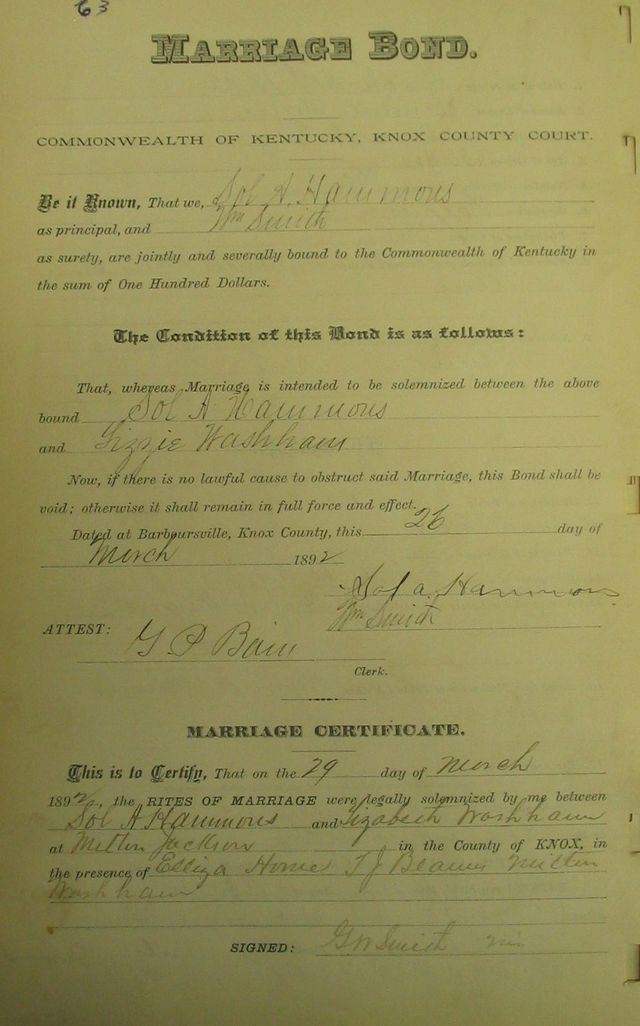 63
MARRIAGE BOND.
COMMONWEALTH OF KENTUCKY, KNOX COUNTY COURT.
Be it Known, That we, Sol A. Hammons
as principal, and Wm Smith
as surety, are jointly and severally bound to the Commonwealth of Kentucky in
the sum of One Hundred Dollars.
The Condition of this Bond is as follows:
That, whereas Marriage is intended to be solemnized between the above
bound Sol A Hammons
and Lizzie Washham
Now, if there is no lawful cause to obstruct said Marriage, this Bond shall be
void; otherwise it shall remain in full force and effect.
Dated at Barboursville, Knox County, this 26 day of
March 1892
Sol A. Hammons
Wm Smith
ATTEST: G P Bain
Clerk.
MARRIAGE CERTIFICATE.
This is to Certify, That on the 29 day of March
1892, the RITES OF MARRIAGE were legally solemnized by me between
Sol A Hammons and Lizabeth Washham
at Milton Jackson in the County of KNOX, in
the presence of Elliza Home T J Milton
Washham
SIGNED: G W Smith